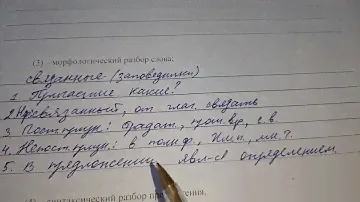 (3) – морфологический разбор слова;
связанные (заповедники)
1. Причастие какие?
2. Нф связанный, от глаг. связать
3. Пост. : страдат., прош. вр, с.в
4. Непост. : в полн. ф., И.п., мн.ч.
5. В предложении явл-ся определением
синтаксический разбор